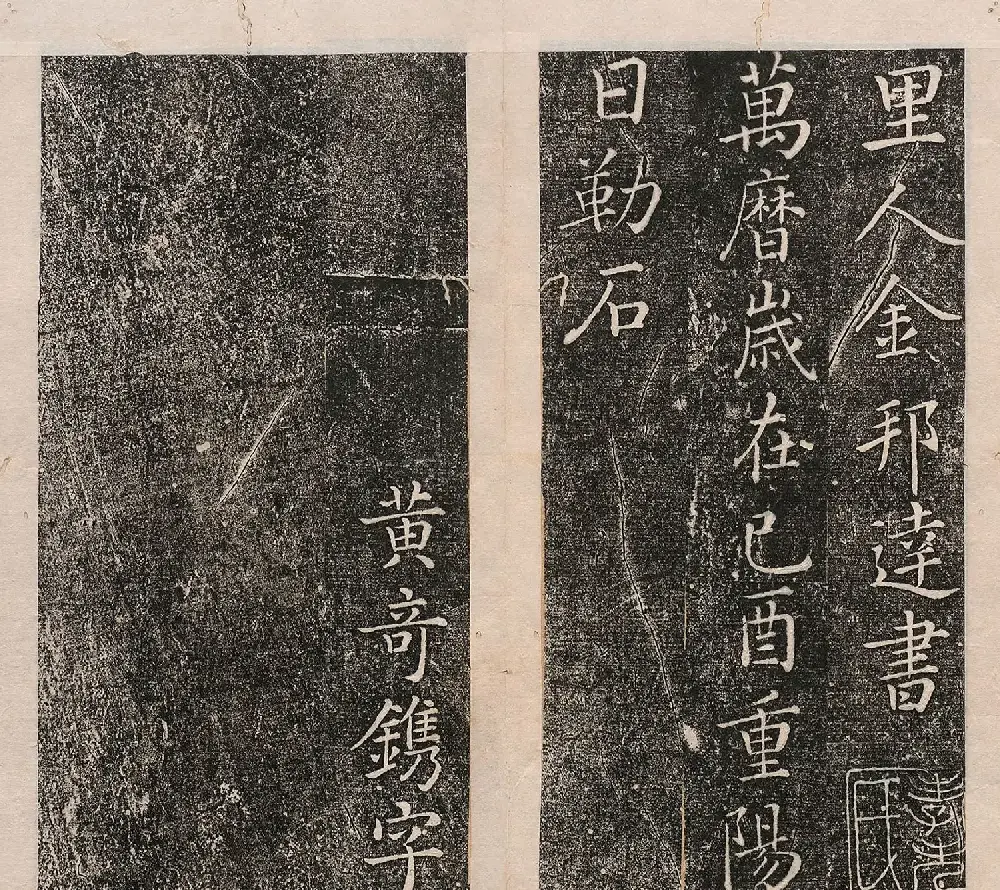 里人金邦達書
萬曆歲在己酉重陽
日勒石
黄奇鐫字